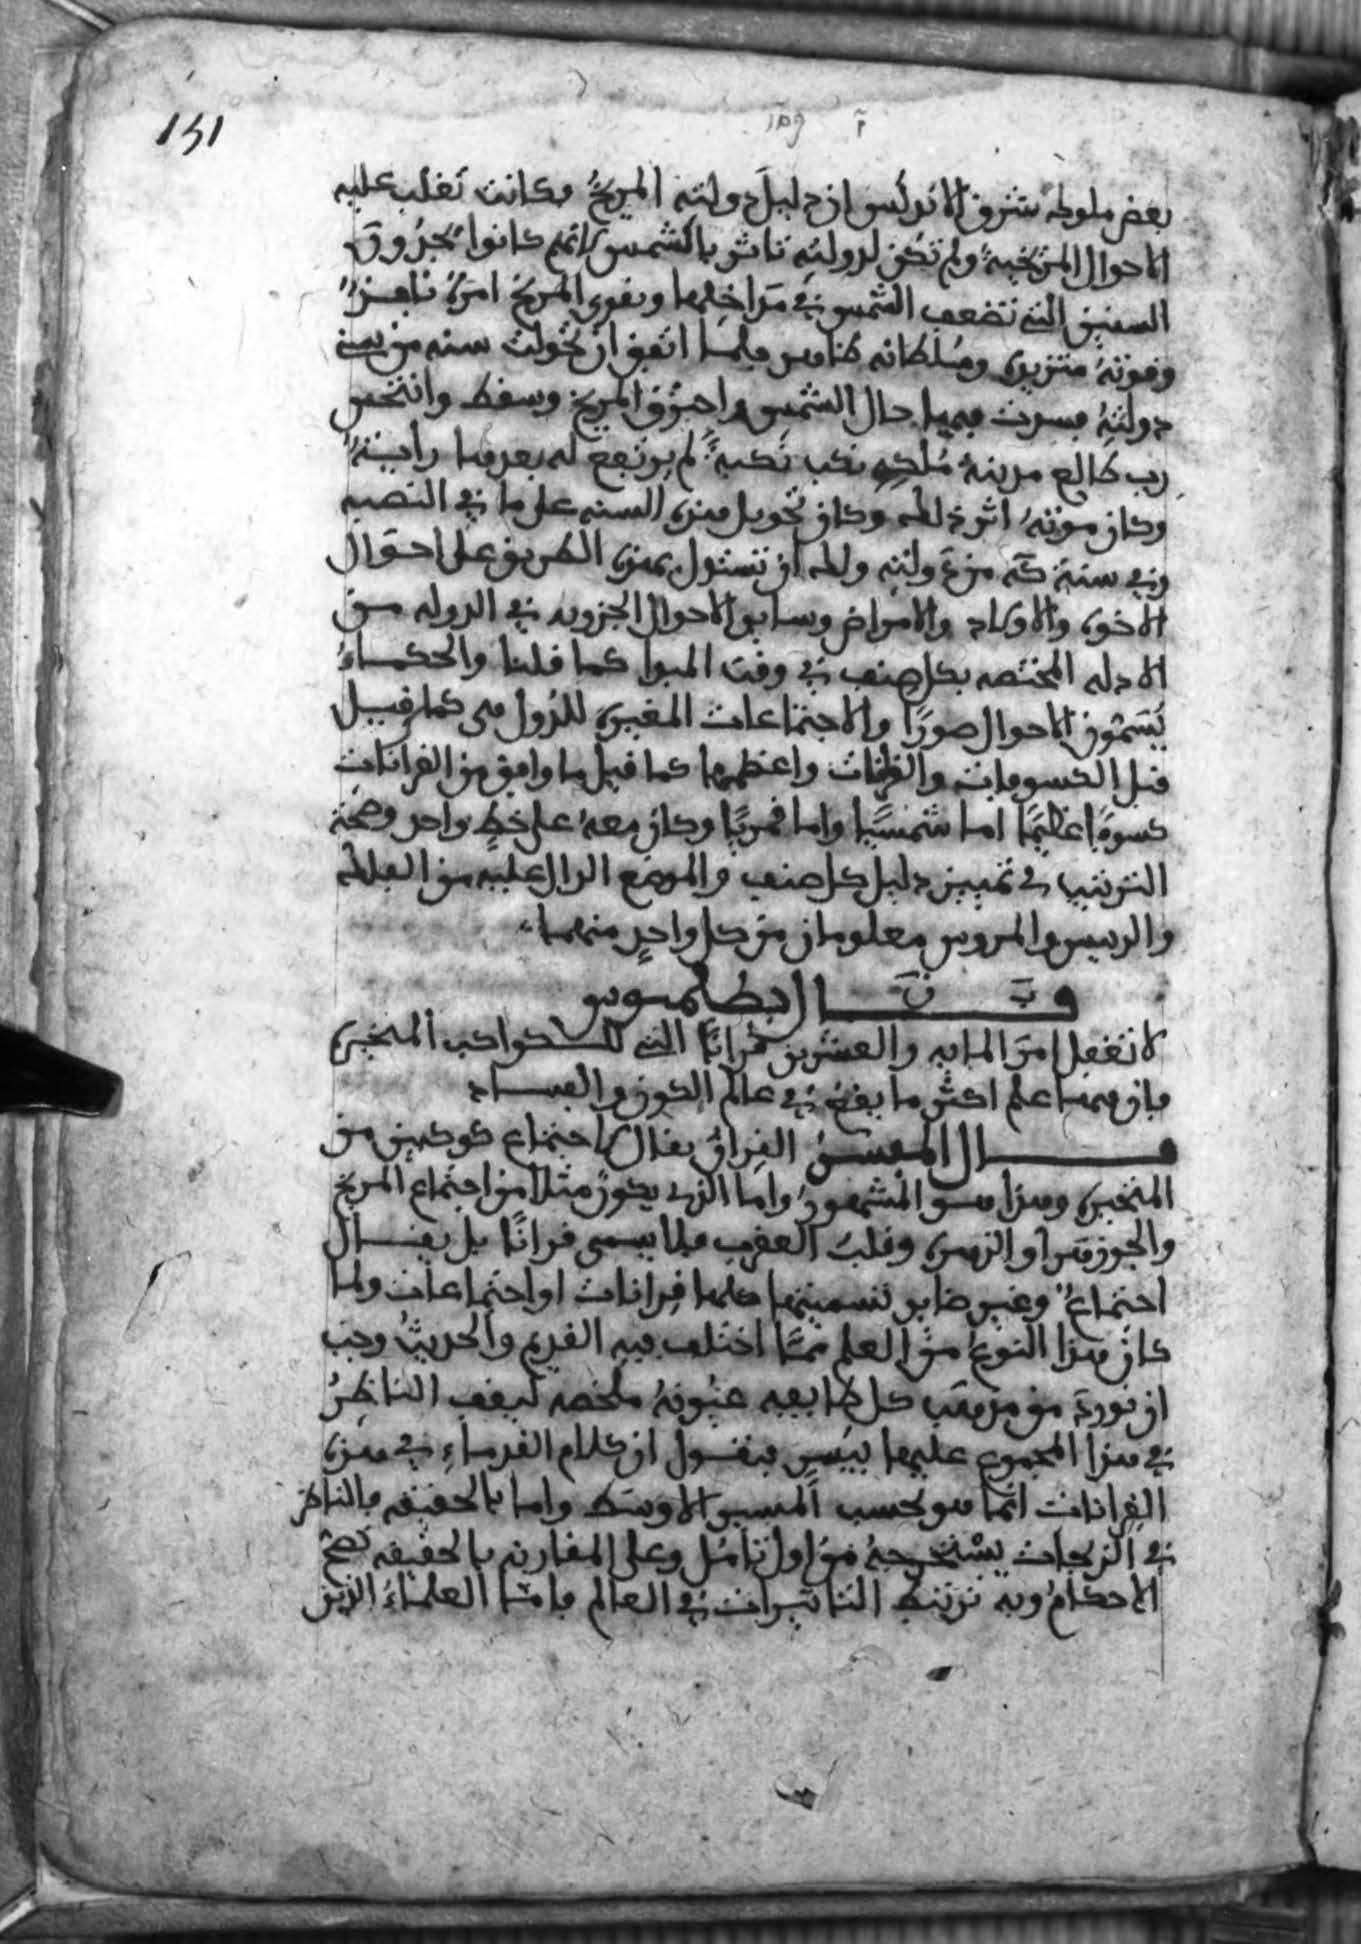 151
بعض ملوك شرق الاندلس ان دليل دولته المريخ فكانت تغلب عليه
الاحوال المريخية ولم تكن لدولته تاثر بالشمس لانهم كانوا يجدون
السنين التي تضعف الشمس في مداخلها ويقوى المريخ امره ناهز
وقوته متزيده وسلطانه فلما اتفق ان تحولت سنه من سني
دولته فسدت فيها حال الشمس واحترق المريخ وسقط وانتحس
رب طالع مدينة ملكه نكب نكبة لم يرتفع له بعدها راية
وكان موته اثر ذلك وكان تحويل هذه السنه على ما في النصبه
وفي سنة من دولته ولك ان تستدل بهذه الطريق على احوال
الاخوه والاولاد والامراض وساير الاحوال الجزويه في الدوله من
الادله المختصه بكل صنف في وقت المبدا كما قلنا والحكماء
يسمون الاحوال صورا والاجتماعات المغيره للدول هي كما قيل
قبل الكسوفات والقرانات واعظمها كما قيل ما وافق من القرانات
كسوفا عظيما اما شمسيا واما قمريا وكان معه على خط واحد وصحة
الترتيب في تمييز دليل كل صنف والموضع الدال عليه من الفلك
والرييس والمروس معلومان من كل واحد منهما
قال بطلميوس
لا تغفل امر المايه والعشرين قرانا التي للكواكب المتحيره
فان فيها علم اكثر ما يقع في عالم الكون والفساد
قال المفسر القران يقال لاجتماع كوكبين من
المتحيره وهذا هو المشهور واما الذي يكون مثلا من اجتماع المريخ
والجوزهر او الزهره وقلب العقرب فلا يسمى قرانا بل يقال
اجتماع وغير ضاير تسميتها كلها قرانات او اجتماعات ولما
كان هذا النوع من العلم مما اختلف فيه القديم والحديث وجب
ان نورد من مذهب كل طايفه عيونه ملخصه ليقف الناظر
في هذا المجموع عليها بيسر فنقول ان كلام القدماء في هذه
القرانات انما هو بحسب المسير الاوسط واما بالحقيقه فالناظر
في الزيجات يستخرجه من اول تامل وعلى المقارنه بالحقيقه تصح
الاحكام وبه ترتبط التاثيرات في العالم فاما العلماء الذين